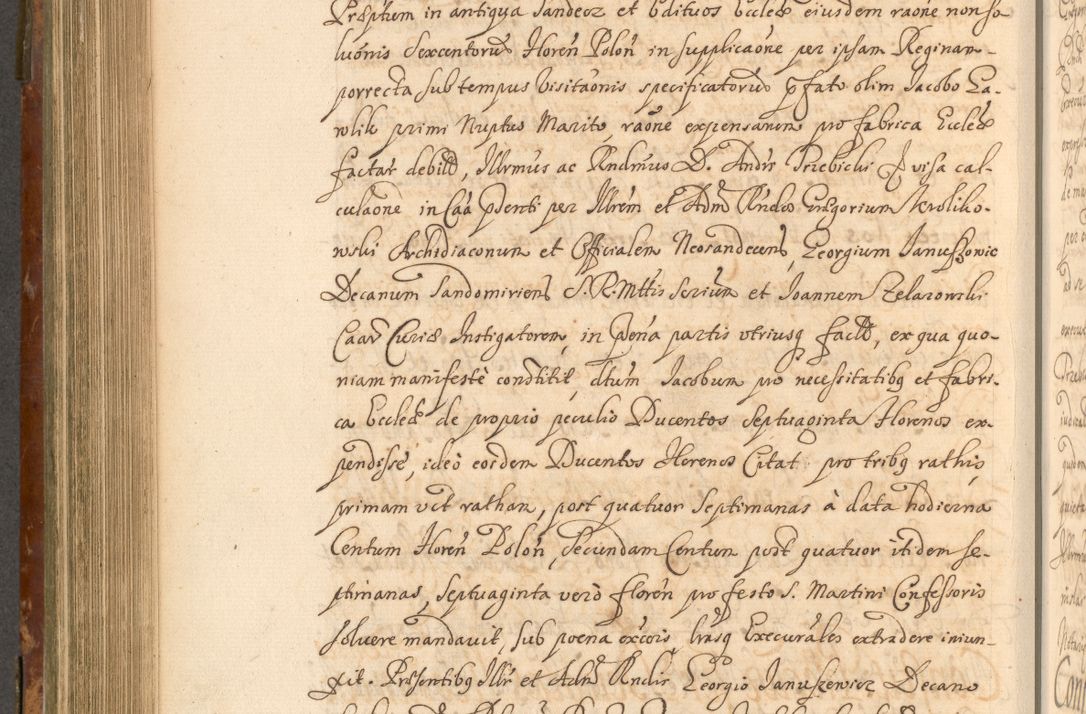 Præptum in antiqua Sandecz et Vditvos Eccles eiusdem raõne non so-
luõnis Sexcentorũ Floreñ Poloñ in supplicaõne per ipsam Reginam
porrecta sub tempus Visitaõnis specificatorũ p fato olim Iacobo Ga-
wlik primi Nuptus Marito, raõne expensarum pro fabrica Eccles
factar debito, Illrmus ac Rndmus D. Andr Trzebicki visa cal-
culaõne in Cãa pdenti per Illrem et Adm Rndos Gregorium Krolik-
owski Archidiaconum et Officialem Neosandecens, Georgium Ianuszowic
Decanum Sandomiriens S. R. Mttis Scrium et Ioannem Zelazowski
Caar Curiæ Instigatorem, in pãena partis vtriusq facto, ex qua quo-
niam manifestè constitit, dtum Iacobum pro necessitatibq et fabri-
ca Eccles de proprio peculio Ducentos Septuaginta Florenos ex-
pendisse, ideò eosdem Ducentos Florenos Citat pro tribq rathis
primam vct ratham, post quatuor Septimanas à data hodierna
Centum Floreñ Poloñ, Secundam Centum post quatuor itidem se-
ptimanas, Septuaginta verò floreñ pro festo S. Martini Confessoris
soluere mandauit, sub poena excõis lrasq Executãles extradere iniun-
xit. Præsentibq Illr et Adm Rndis Georgio Ianuszewicz Decano